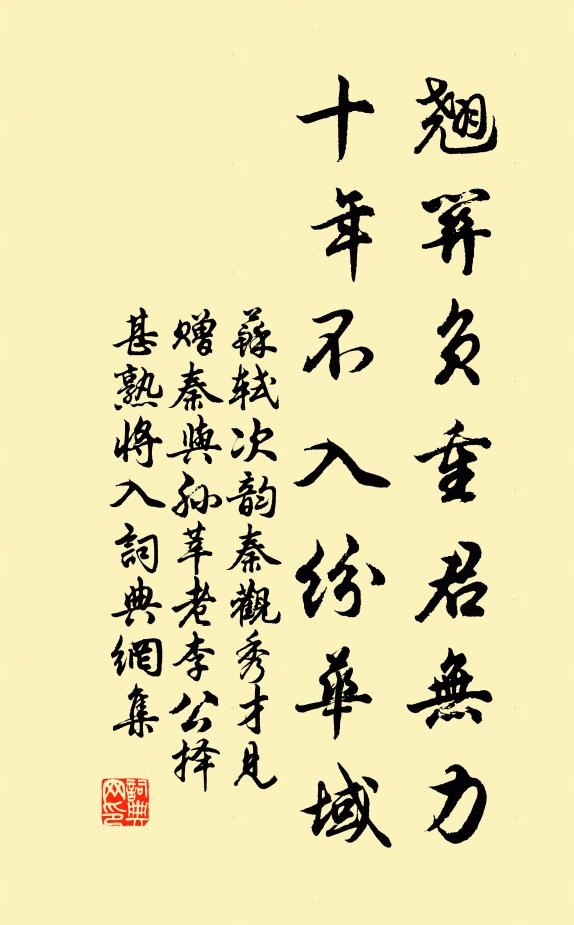 翹關負重君無力
十年不入紛華域
蘇軾次韵秦觀秀才見
赠秦與孙莘老李公择
甚熟將入詞典網集
詞典网印